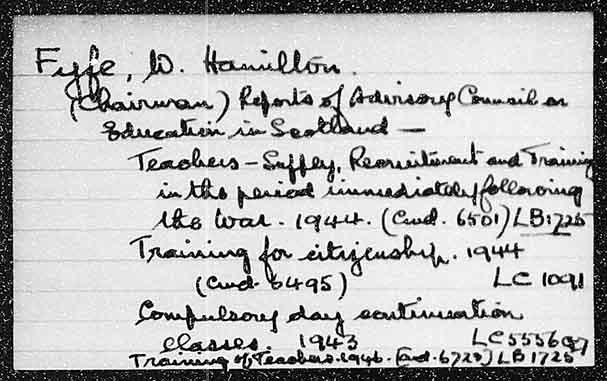 Fyfe, W. Hamilton.
(Chairman) Reports of Advisory Council on
Education in Scotland —
Teachers - Supply, Recruitment and Training
in the period immediately following
the War. 1944. (Cmd. 6501) LB1725
Training for citizenship. 1944
(Cmd. 6495) LC 1091
Compulsory day continuation
classes. 1943 LC5556
Training of Teachers. 1946. (Cmd. 6723) LB1725